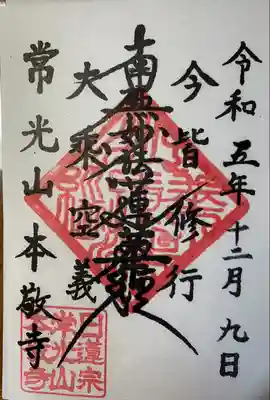 令和五年十二月九日
今皆修行
南無妙法蓮華経
大乘空義
常光山本敬寺
日蓮宗
常光山
本敬寺